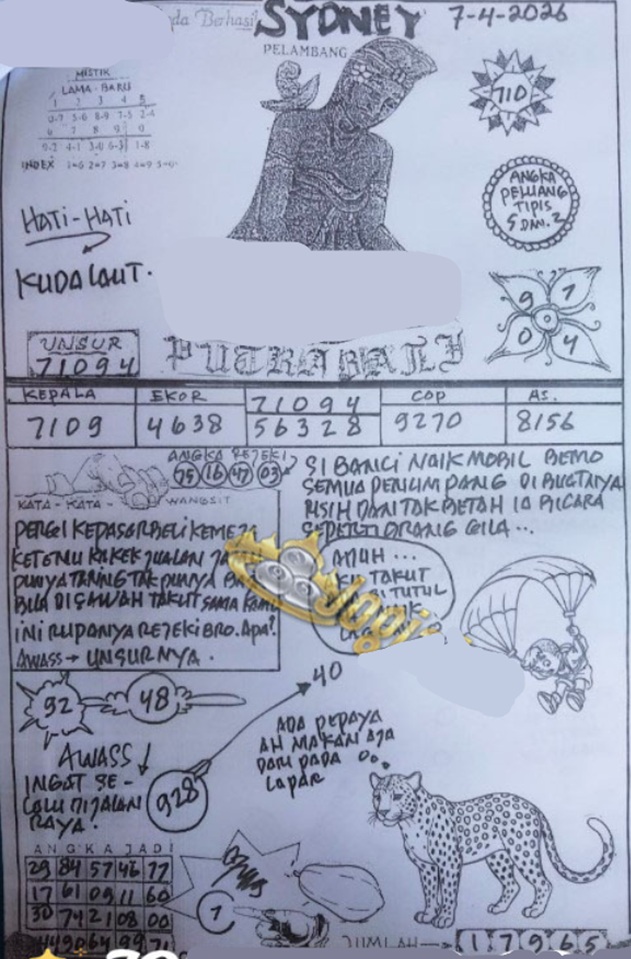 SYDNEY 7-4-2026
PELAMBANG
MISTIK
LAMA - BARU
1 2 3 4 5
6 7 8 9 0
INDEX 1=6 2=7 3=8 4=9 5=0
710
ANGKA
PELUANG
TIPIS
5 DAN. 2
HATI-HATI
KUDA LAUT.
9 7
0 4
UNSUR
71094
PUTRA BALI
KEPALA EKOR 71094 COP AS.
7109 4638 56328 9270 8156
ANGKA REJEKI
75 16 47 03
KATA - KATA - WANGSIT
PERGI KEPASAR BELI KEMEJA
KETEMU KAKEK JUALAN
PUNYA TARING TAK PUNYA
BILA DIBAWAH TAKUT SAMA KAMU
INI RUPANYA REJEKI BRO. APA?
AWASS → UNSURNYA.
SI BANCI NAIK MOBIL BEMO
SEMUA PENUMPANG DIBUATNYA
RISIH DAN TAK BETAH IA BICARA
SEPERTI ORANG GILA...
ADUH ...
TAKUT
TUTUL
Jogi
92
48
40
AWASS
INGAT SE-
LALU DIJALAN
RAYA.
928
ADA PEPAYA
AH MAKAN AJA
DARI PADA
LAPAR
ANGKA JADI
29 84 57 46 77
17 61 09 11 60
30 74 21 08 00
44 90 64 99 71
7
JUMLAH → 1 7 9 6 5